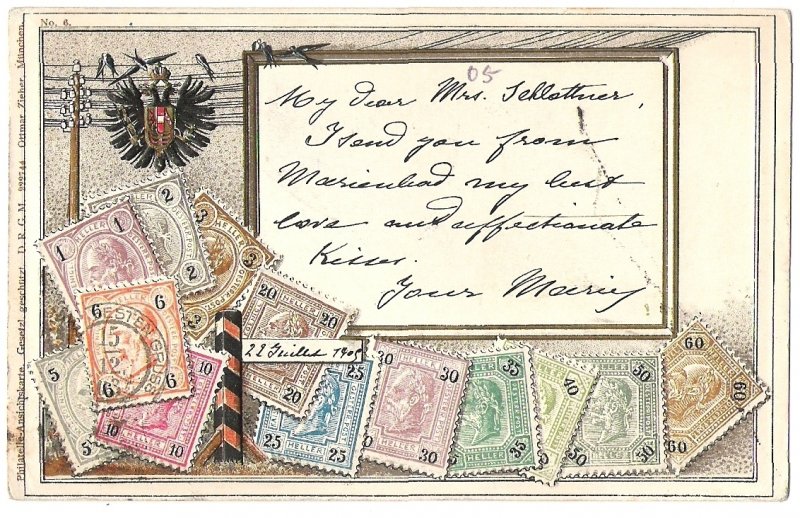 No. 6.
05
My dear Mrs. Schlottner,
I send you from
Marienbad my best
love and affectionate
Kisses.
Your Marie
22 Juillet 1905
Philatelie-Ansichtskarte. Gesetzl. geschützt. D. R. G. M. 222744 Ottmar Zieher, München.
1 1
HELLER
2
2
3 3
HELLER
3
6 6
HELLER
6 6
BESTEN GRUSS
15
12
5
5
10
10 10
HELLER
20
HELLER
20
20
25
25 25
HELLER
30
30 30
HELLER
35
35
HELLER
40
50
50 50
HELLER
60
60
60